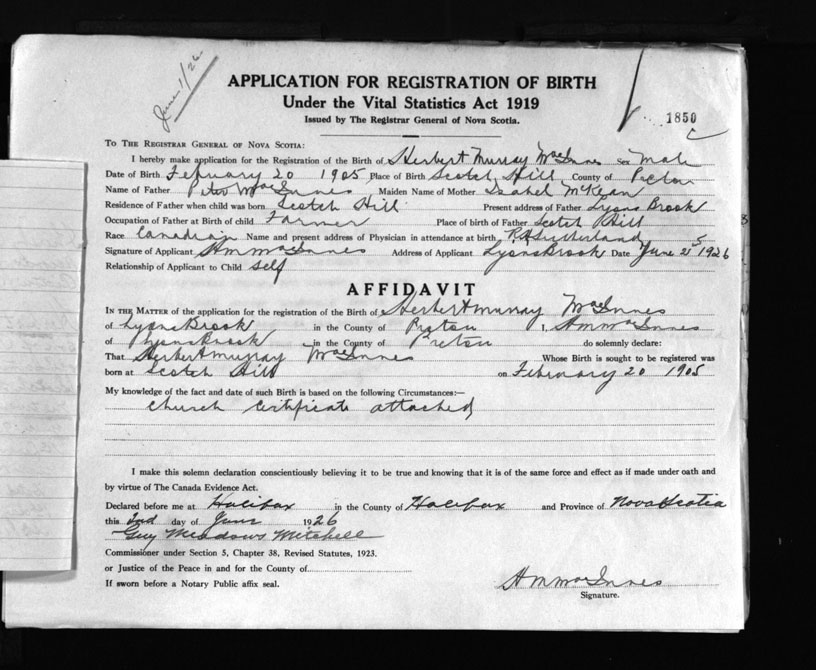 June 1/26
APPLICATION FOR REGISTRATION OF BIRTH
Under the Vital Statistics Act 1919
Issued by The Registrar General of Nova Scotia.
1850
To The Registrar General of Nova Scotia:
I hereby make application for the Registration of the Birth of Herbert Murray MacInnes Sex Male
Date of Birth February 20 1905 Place of Birth Scotch Hill County of Pictou
Name of Father Peter MacInnes Maiden Name of Mother Isabel McKean
Residence of Father when child was born Scotch Hill Present address of Father Lyons Brook
Occupation of Father at Birth of child Farmer Place of birth of Father Scotch Hill
Race Canadian Name and present address of Physician in attendance at birth Sutherland
Signature of Applicant H M MacInnes Address of Applicant Lyons Brook Date June 1926
Relationship of Applicant to Child self
AFFIDAVIT
In the Matter of the application for the registration of the Birth of Herbert Murray MacInnes
of Lyons Brook in the County of Pictou I, H M MacInnes
of Lyons Brook in the County of Pictou do solemnly declare:
That Herbert Murray MacInnes Whose Birth is sought to be registered was
born at Scotch Hill on February 20 1905
My knowledge of the fact and date of such Birth is based on the following Circumstances:—
Church Certificate attached
I make this solemn declaration conscientiously believing it to be true and knowing that it is of the same force and effect as if made under oath and
by virtue of The Canada Evidence Act.
Declared before me at Halifax in the County of Halifax and Province of Nova Scotia
this 2nd day of June 1926
Guy Meadows Mitchell
Commissioner under Section 5, Chapter 38, Revised Statutes, 1923.
or Justice of the Peace in and for the County of
If sworn before a Notary Public affix seal.
H M MacInnes
Signature.